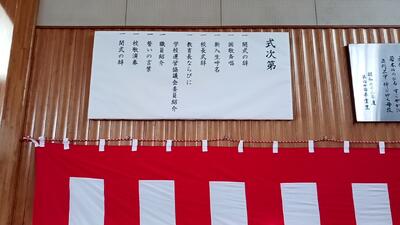 式次第
一 開式の辞
一 国歌斉唱
一 新入生呼名
一 校長式辞
一 教育長ならびに
学校運営協議会委員紹介
一 職員紹介
一 誓いの言葉
一 校歌演奏
一 閉式の辞